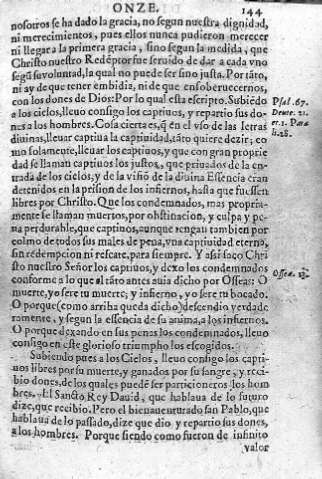 ONZE. 144
nosotros se ha dado la gracia, no segun nuestra dignidad,
ni merecimientos, pues ellos nunca pudieron merecer
ni llegar a la primera gracia, sino segun la medida, que
Christo nuestro Redẽptor fue seruido de dar a cada vno
segũ su voluntad, la qual no puede ser sino justa. Por tãto,
ni ay de que tener embidia, ni de que ensoberuecernos,
con los dones de Dios: Por lo qual esta escripto. Subiẽdo
a los cielos, lleuo consigo los captiuos, y repartio sus do-
nes a los hombres. Cosa cierta es, q̃ en el vso de las letras
diuinas, lleuar captiua la captiuidad, tãto quiere dezir; co
mo solamente, lleuar los captiuos, y que con gran proprie
dad se llaman captiuos los justos, que priuados de la en-
trada de los cielos, y de la visiõ de la diuina Essencia eran
detenidos en la prision de los infiernos, hasta que fuessen
libres por Christo. Que los condemnados, mas propria-
mente se llaman muertos, por obstinacion, y culpa y pe
na perdurable, que captiuos, aunque tengan tambien por
colmo de todos sus males de pena, vna captiuidad eterna,
sin redempcion ni rescate, para siempre. Y assi saco Chri
sto nuestro Señor los captiuos, y dexo los condemnados
conforme a lo que al tãto antes auia dicho por Osseas: O
muerte, yo sere tu muerte, y infierno, yo sere tu bocado.
O porque (como arriba queda dicho) descendio verdade
ramente, y segun la essencia de su anima, a los infiernos.
O porque dexando en sus penas los condemnados, lleuo
consigo en este glorioso triumpho los escogidos.
Subiendo pues a los Cielos, lleuo consigo los capti-
uos libres por su muerte, y ganados por su sangre, y reci-
bio dones, de los quales puedẽ ser particioneros los hom
bres. El Sancto Rey Dauid, que hablaua de lo futuro
dize, que recibio. Pero el bienauenturado san Pablo, que
hablaua de lo passado, dize que dio y repartio sus dones,
a los hombres. Porque siendo como fueron de infinito
valor
Psal. 67.
Deute. 21.
er. 1. Para
li. 28.
Osseæ. 13.